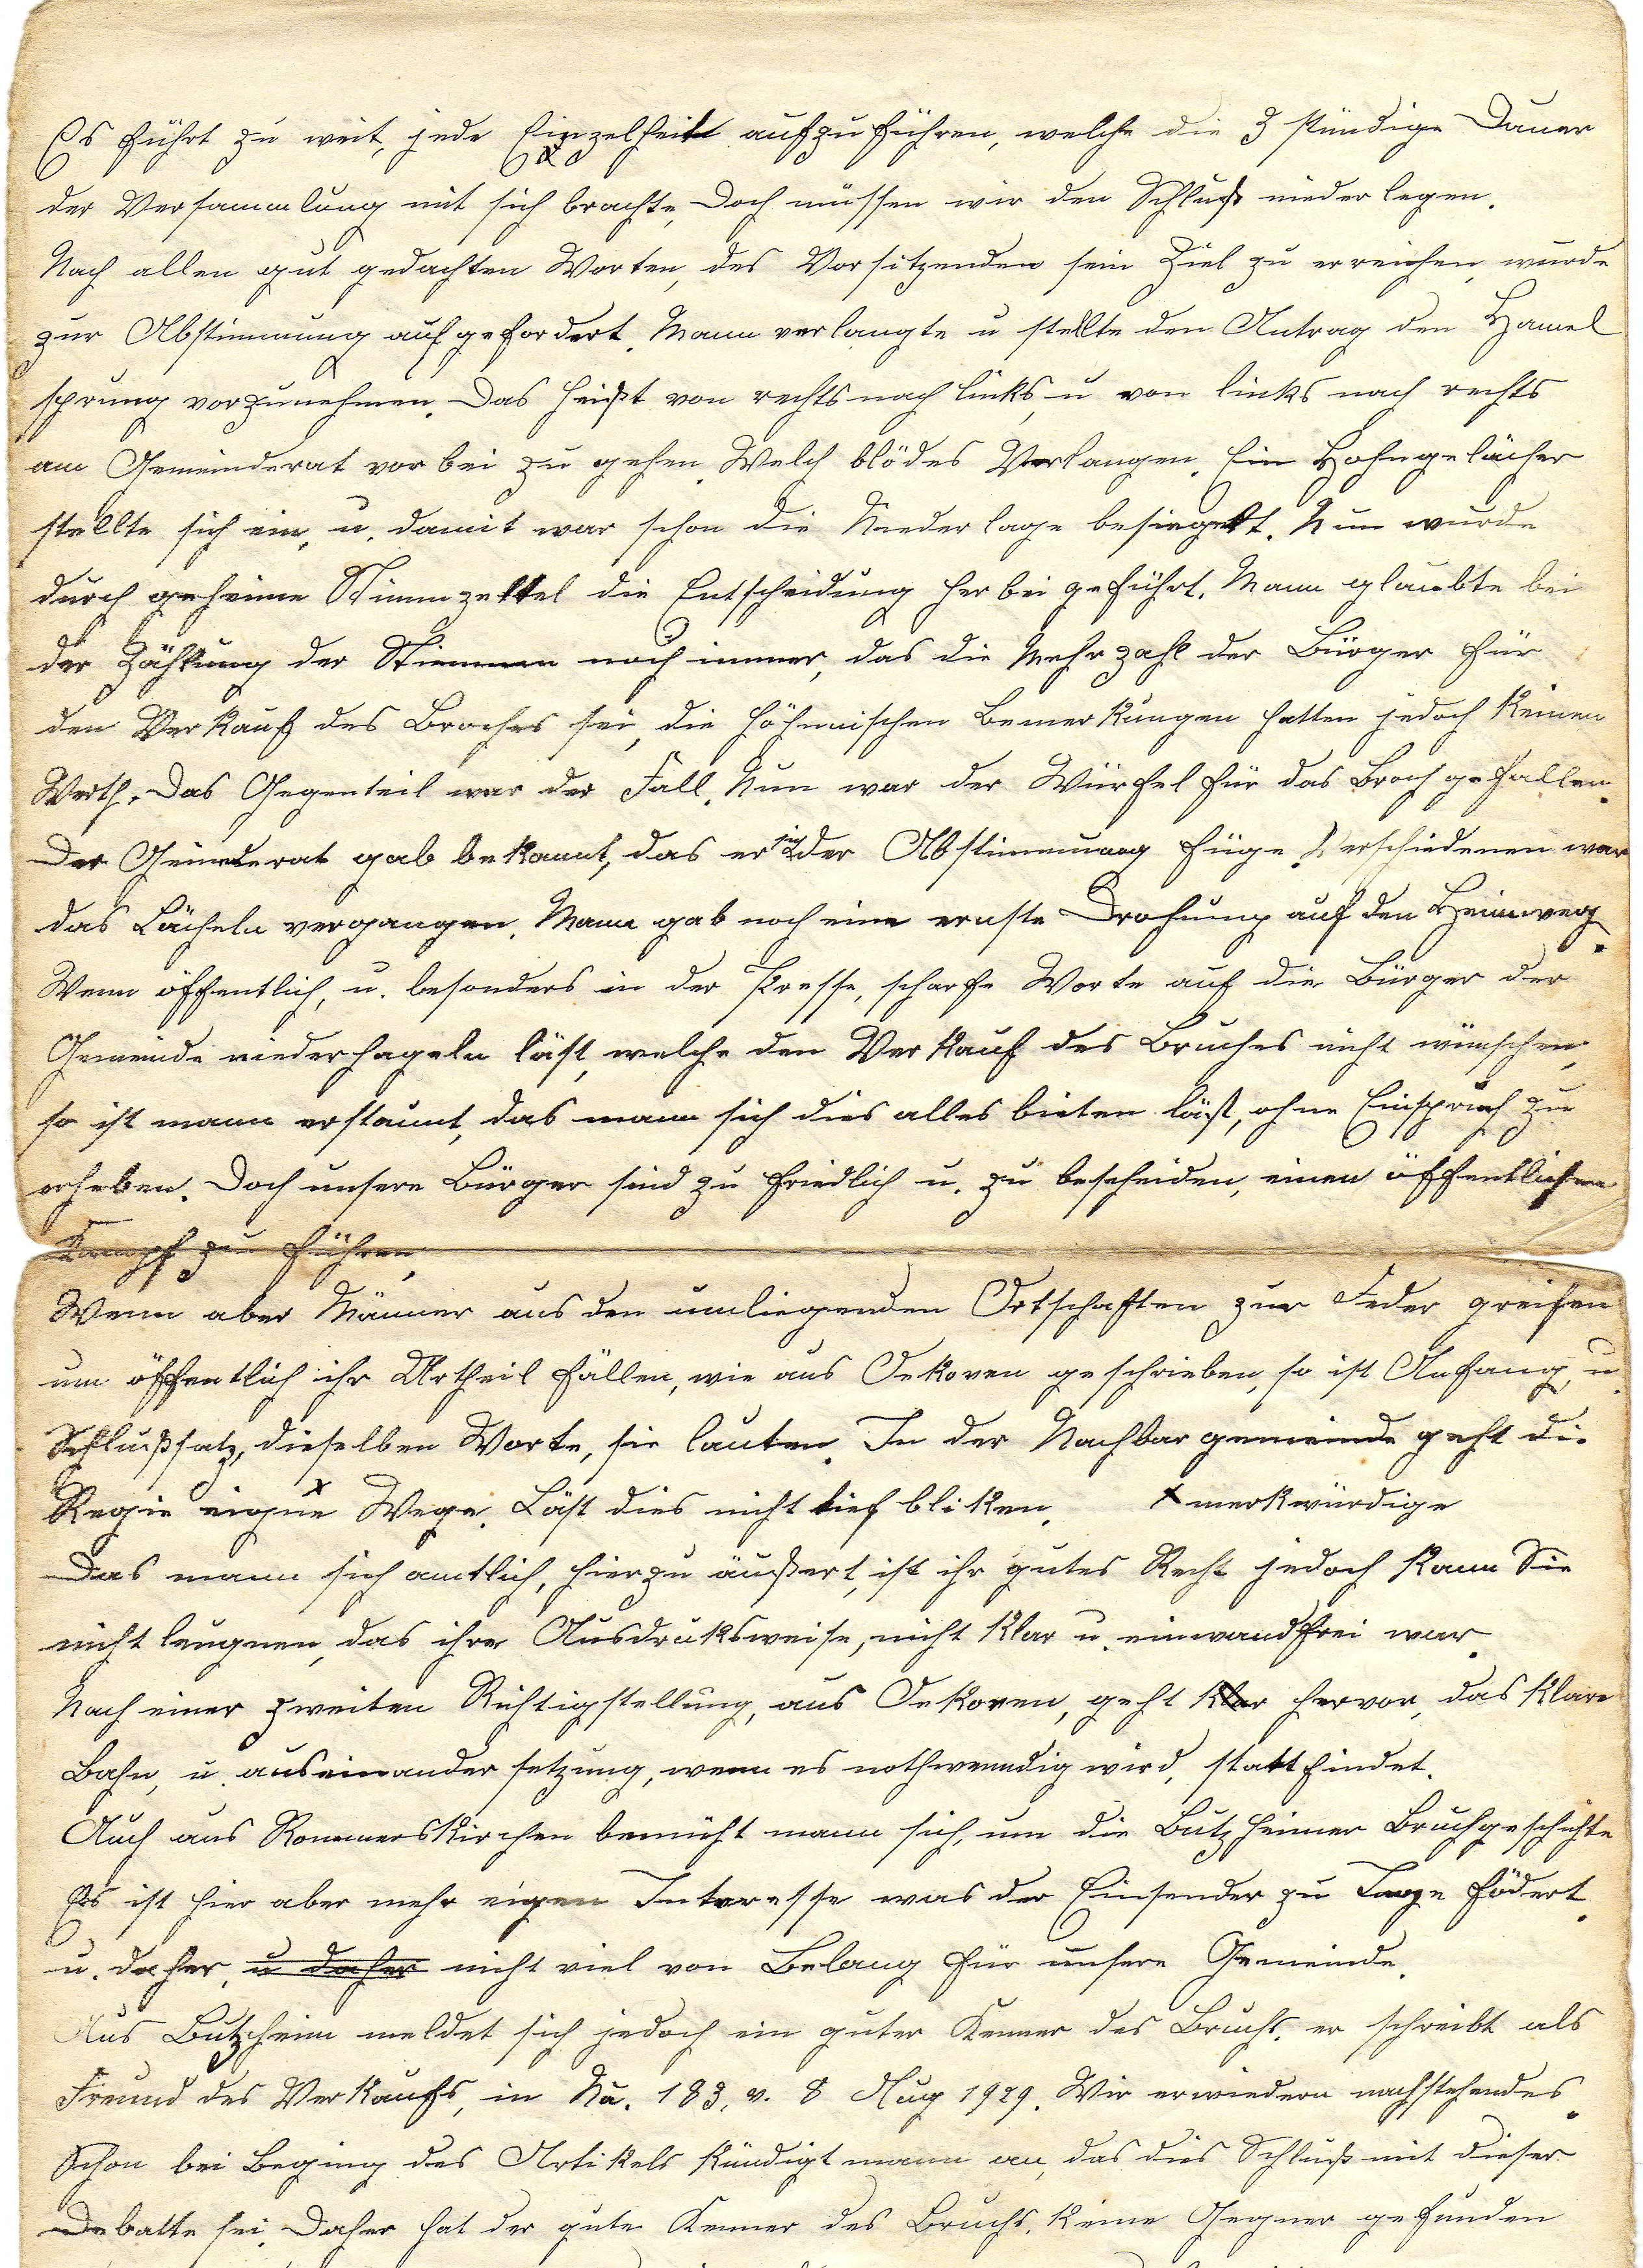 Es führt zu weit, jede Einzelheit aufzuführen, welche die 3 stündige Dauer
der Versammlung mit sich brachte, Doch müssen wir den Schluß nieder legen.
Nach allen gut gedachten Worten, des Vorsitzenden sein Ziel zu erreichen, wurde
zur Abstimmung aufgefordert. Mann verlangte u stellte den Antrag den Hamel
sprung vorzunehmen. Das heißt von rechts nach links, u von links nach rechts
am Gemeinderat vorbei zu gehen. Welch blödes Verlangen. Ein Hohngelächer
stellte sich ein, u. damit war schon die Niederlage besiegelt. Nun wurde
durch geheime Stimmzettel die Entscheidung herbei geführt. Mann glaubte bei
der Zählung der Stimmen noch immer, das die Mehrzahl der Bürger für
den Verkauf des Broches sei, die höhnischen Bemerkungen hatten jedoch keinen
Werth. Das Gegenteil war der Fall. Nun war der Würfel für das Broch gefallen.
Der Geinderat gab bekannt, das er sich der Abstimmung füge. Verschiedenen war
das Lächeln vergangen. Mann gab noch eine ernste Drohung auf den Heimweg.
Wenn öffentlich, u. besonders in der Presse, scharfe Worte auf die Bürger der
Gemeinde niederhageln läst, welche den Verkauf des Bruches nicht wünschen,
so ist mann erstaunt, das mann sich dies alles bieten läßt, ohne Einspruch zu
erheben. Doch unsere Bürger sind zu friedlich u. zu bescheiden, einen öffentlichen
Kampf zu führen,
Wenn aber Männer aus den umliegenden Ortschaften zur Feder greifen
um öffentlich ihr Urtheil fällen, wie aus Oekoven geschrieben, so ist Anfang, u.
Schlußsatz, dieselben Worte, sie lauten. In der Nachbargemeinde geht die
Regie eigne x Wege. Läst dies nicht tief bliken. x merkwürdige
Das mann sich amtlich, hierzu äußert, ist ihr gutes Recht jedoch kann Sie
nicht leugnen, das ihre Ausdruksweise, nicht klar u. einwandfrei war.
Nach einer zweiten Richtigstellung, aus Oekoven, geht klar hervor, das klare
Bahn, u. auseinander setzung, wenn es nothwenndig wird, stattfindet.
Auch aus Rommerskirchen bemüht mann sich, um die Butzheimer Bruchgeschichte
Es ist hier aber mehr eigen Interesse was der Einsender zu Tage födert.
u. daher, u daher nicht viel von Belang für unsere Gemeinde.
Aus Butzheim meldet sich jedoch ein guter Kenner des Bruchs. er schreibt als
Freund des Verkaufs, in No. 183, v. 8 Aug 1929. Wir erwiedern nachstehendes.
Schon bei Beging des Artikels kündigt mann an, das dies Schluß mit dieser
Debatte sei. Daher hat der gute Kenner des Bruchs. keine Gegner gefunden